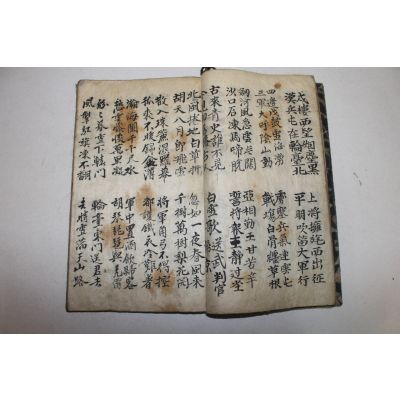 戍樓西望烟塵黑 上將擁旄西出征
漢兵屯在輪臺北 平明吹笛大軍行
四邊伐鼓雪海湧 虜塞兵氣連雲屯
三軍大呼陰山動 戰場白骨纏草根
劒河風急雲片闊 亞相勤王甘苦辛
沙口石凍馬蹄脫 誓將報主靜邊塵
古來青史誰不見 白雪歌送武判官
今見功名勝古人
北風捲地白草折 忽如一夜春風來
胡天八月即飛雪 千樹萬樹梨花開
散入珠簾濕羅幕 將軍角弓不得控
狐裘不暖錦衾薄 都護鐵衣冷難着
瀚海闌干千尺氷 軍中置酒飲歸客
愁雲黲淡萬里凝 胡琴琵琶與羌笛
紛々暮雪下轅門 輪臺東門送君去
風掣紅旗凍不翻 去時雪滿天山路